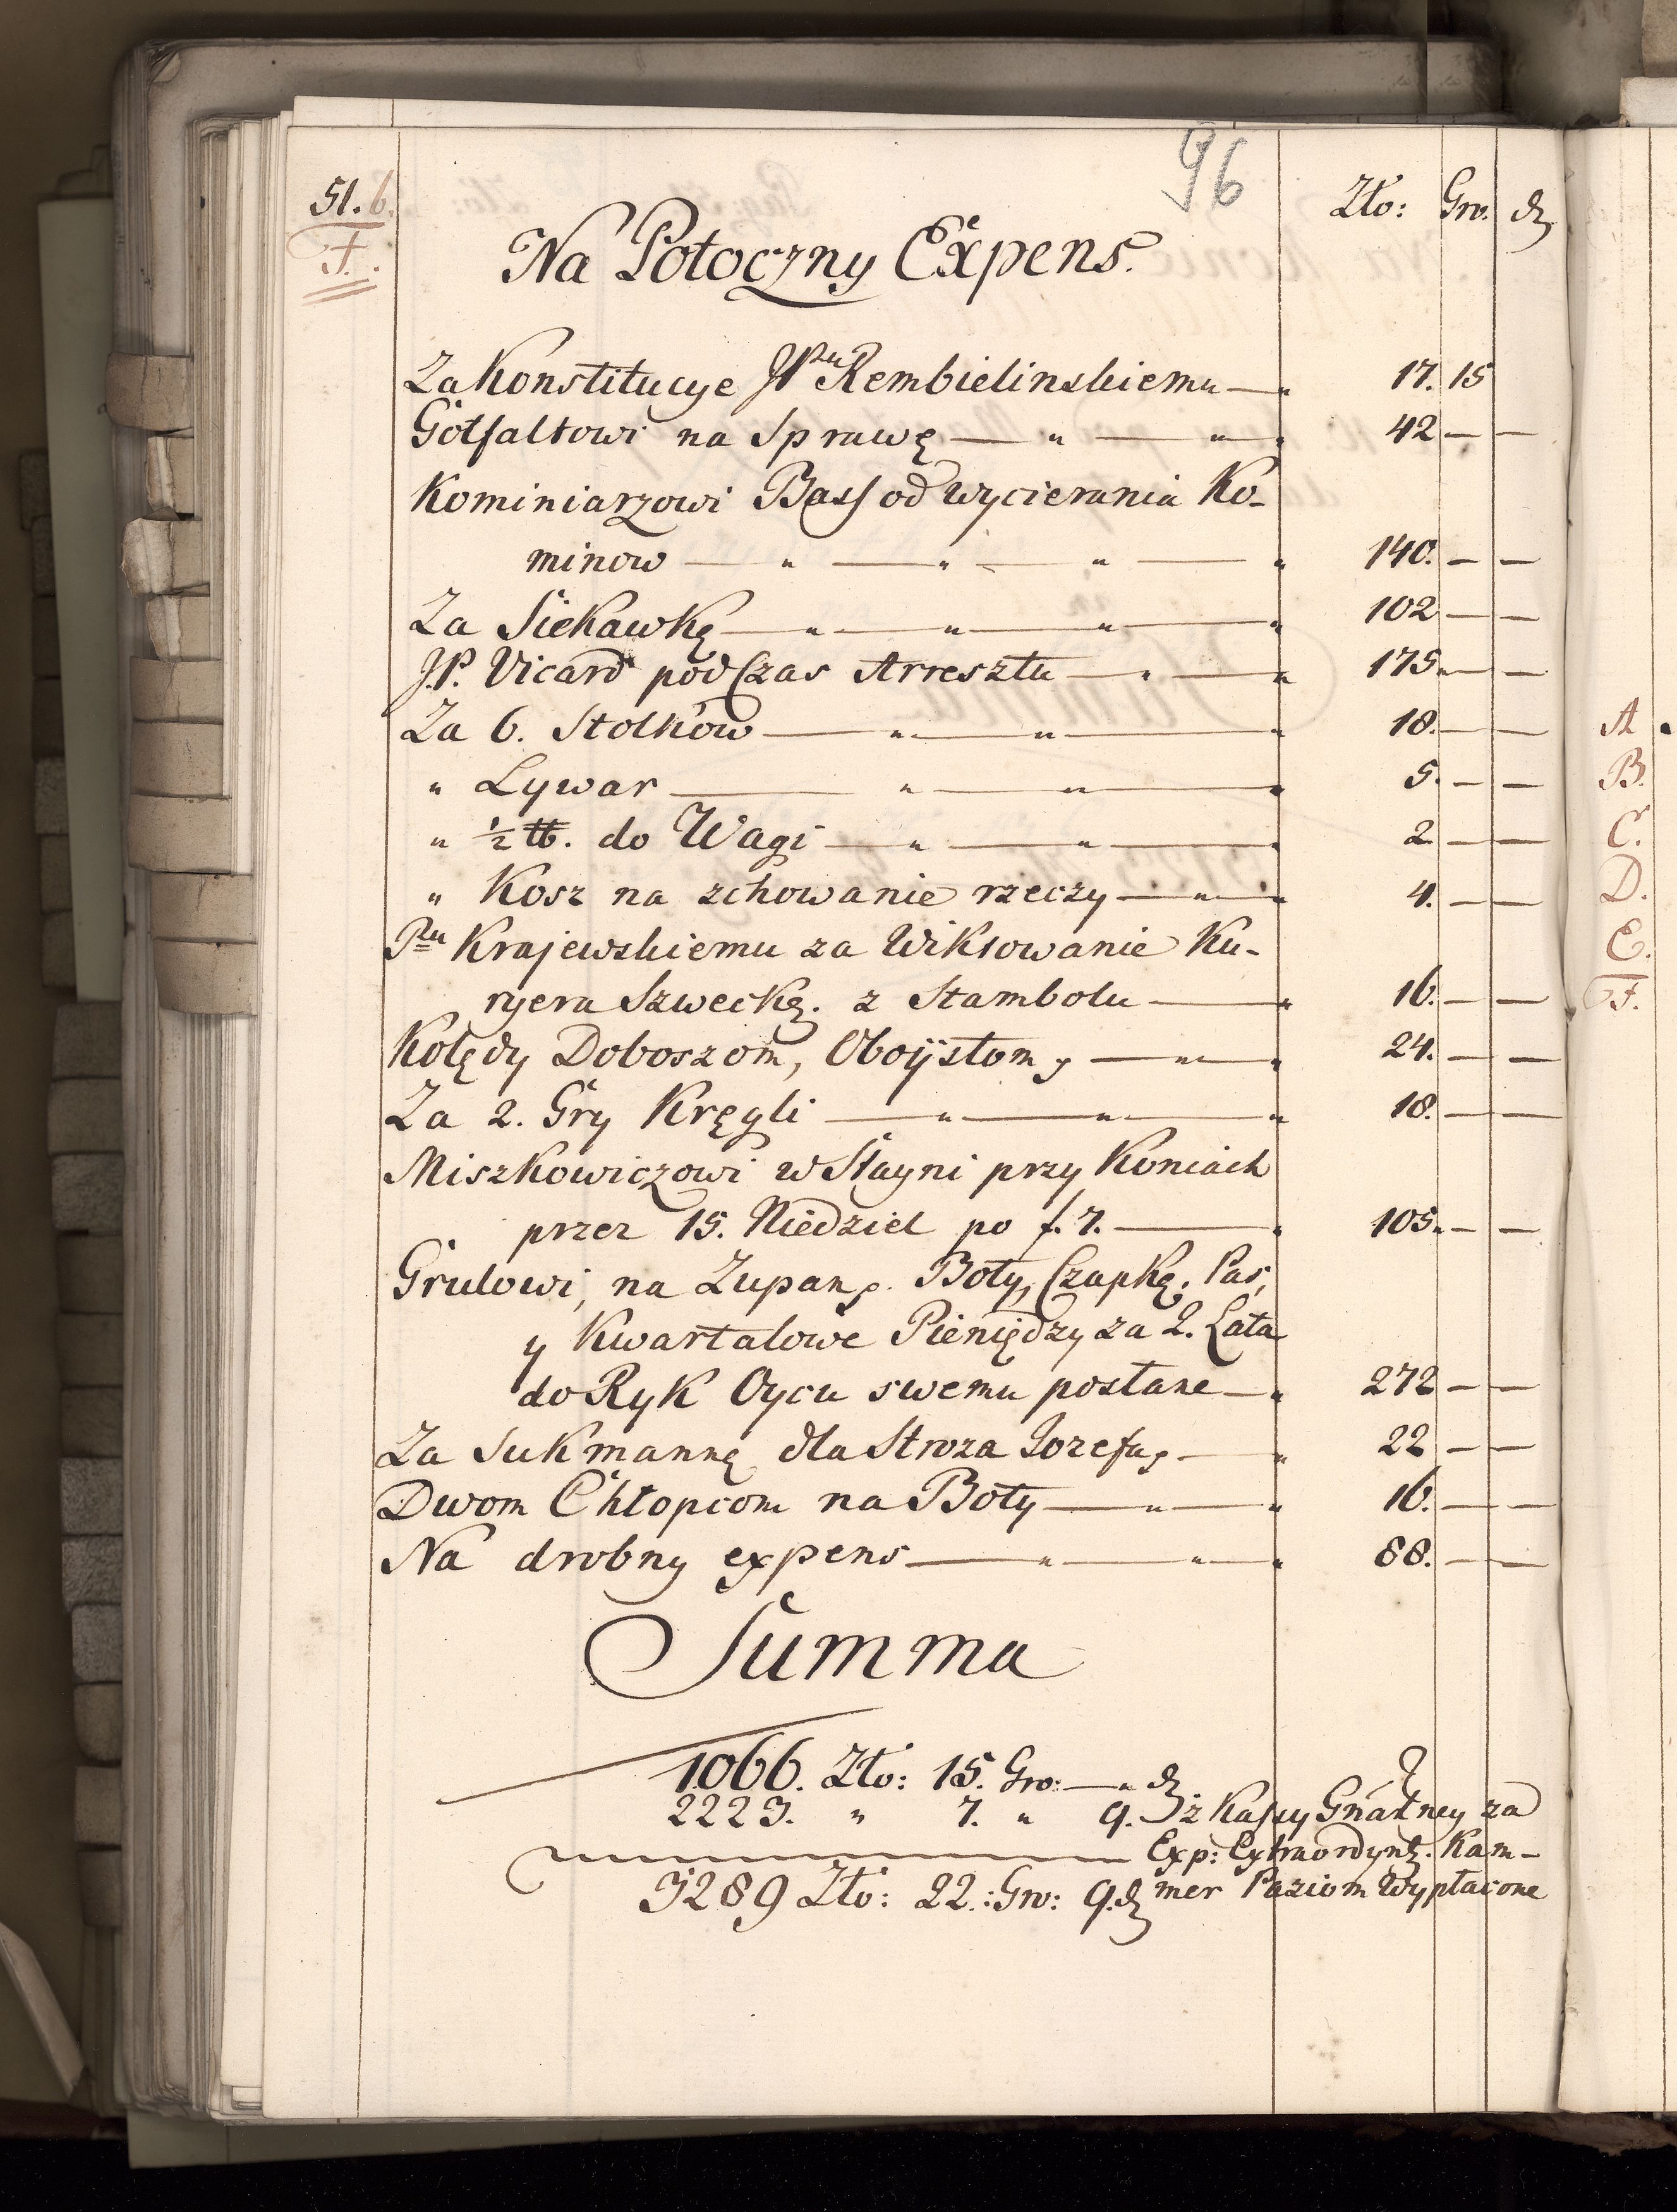 96
51.b.
F.
Zło: Gro. d
Na Potoczny Expens.
Za Konstitucye JPnu Rembielinskiemu — 17. 15
Gotfaltowi na Sprawę — " — " 42 — —
Kominiarzowi Bass od wycierania Ko-
minow — " — " — " — " 140. — —
Za Siekawkę — " — " — " — " 102 — —
J.P. Vicard podczas Arresztu — " — " 175 — —
Za 6. Stołkow — " — " — " 18. — —
" Lywar — " — " — " 5. — —
" ½ ℔. do Wagi — " — " — 2 — —
" Kosz na zchowanie rzeczy — " — " 4. — —
Pnu Krajewskiemu za Wiktowanie Ku-
ryera Szweckę. z Stambolu — " 16. — —
Kolędy Doboszom, Oboÿstom, — " — " 24. — —
Za 2. Gry Kręgli — " — " — " 18. — —
Miszkowiczowi w Stayni przy Koniach
przez 15. Niedziel po f. 7. — " 105 — —
Grulowi, na Zupan, Boty, Czapkę, Pas,
y Kwartalowe Pieniędzy za 2. Lata
do Ryk Oycu swemu posłane — " 272 — —
Za Sukmannę dla Stroza Jozefa, — " 22 — —
Dwom Chłopcom na Boty — " — " 16. — —
Na drobny expens — " — " — " 88. — —
Summa
1066. Zło: 15. Gro: — " d
2223. " 7. " 9. z Kassy Gnalney za
Exp: Extraordynę. Kam-
3289 Zło: 22.: Gro: 9. d mer Paziom Wypłacone
A.
B.
C.
D.
E.
F.